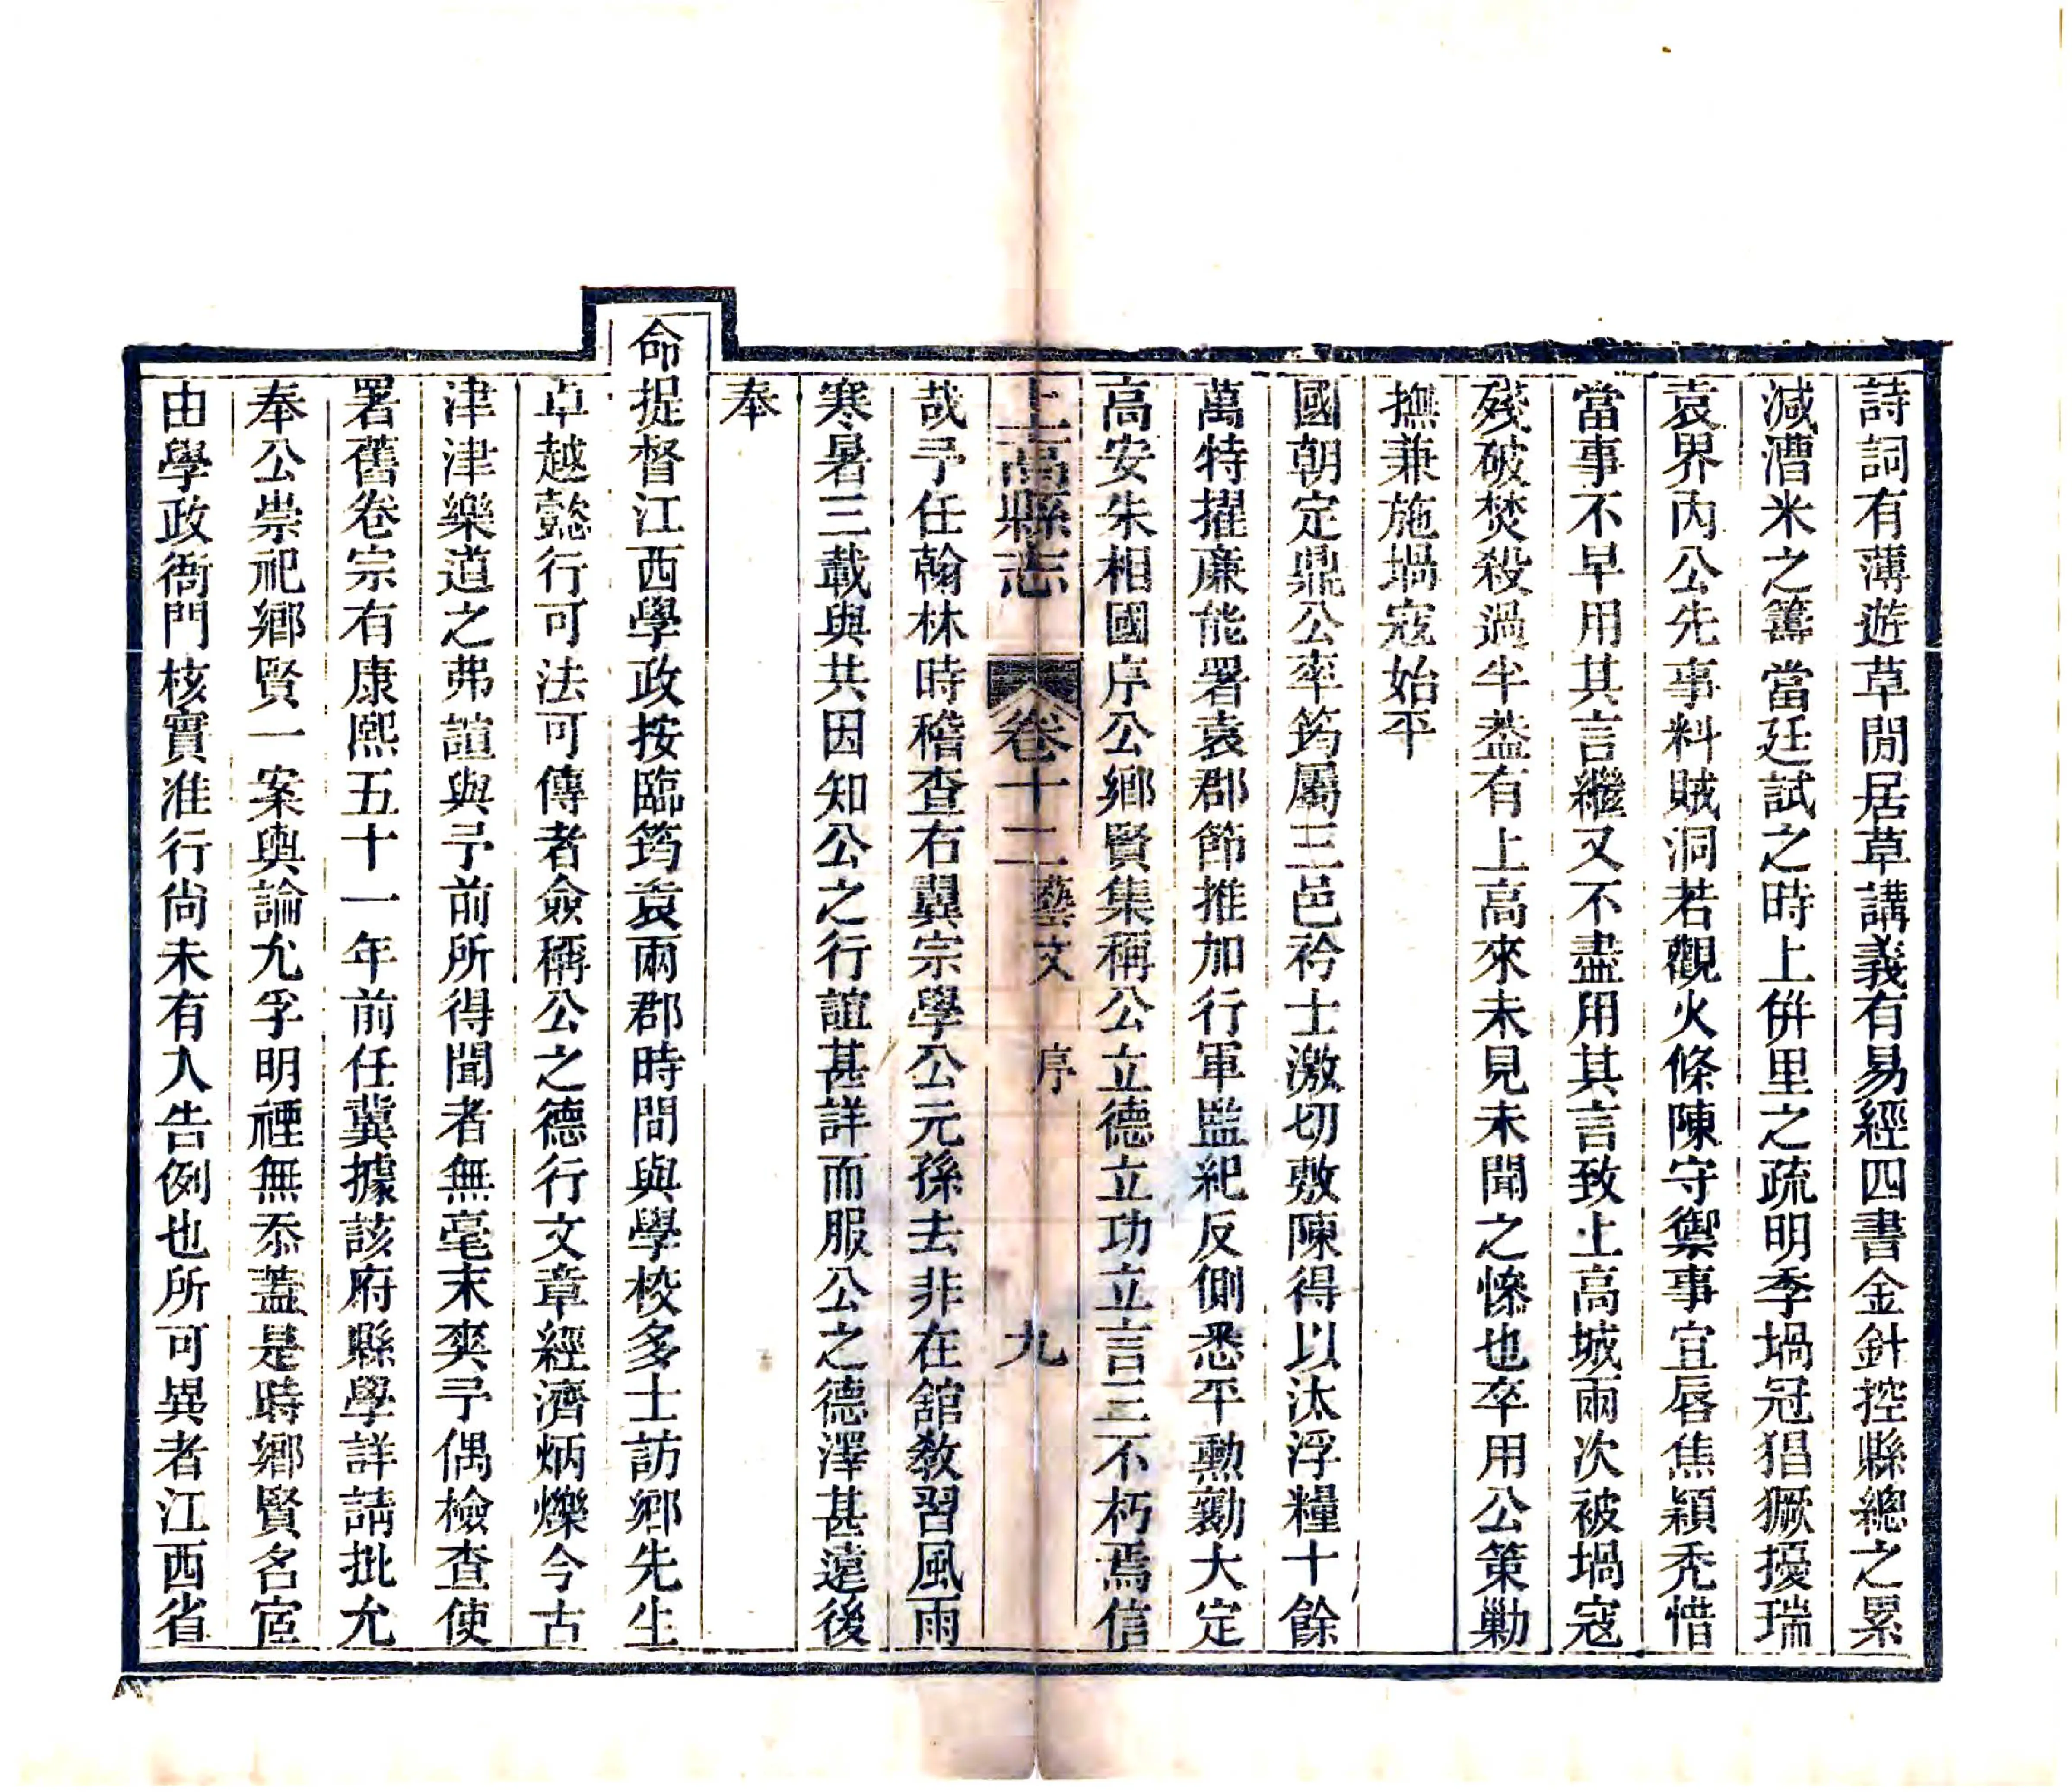 詩詞有薄遊草閒居草講義有易經四書金針控縣總之累
減漕米之籌當廷試之時上併里之疏明季堝冦猖獗擾瑞
袁界内公先事料賊洞若觀火條陳守禦事宜唇焦穎禿惜
當事不早用其言繼又不盡用其言致上高城兩次被堝寇
殘破焚殺過半葢有上高來未見未聞之慘也卒用公策勦
撫兼施堝寇始平
國朝定鼎公率筠屬三邑衿士激切敷陳得以汰浮糧十餘
萬特擢廉能署袁郡節推加行軍監紀反側悉平勳勷大定
高安朱相國序公鄉賢集稱公立德立功立言三不朽焉信
上高縣志 卷十二 藝文 序 九
哉予任翰林時稽查右翼宗學公元孫去非在舘教習風雨
寒暑三載與共因知公之行誼甚詳而服公之德澤甚遠後
奉
命提督江西學政按臨筠袁兩郡時間與學校多士訪鄉先生
卓越懿行可法可傳者僉稱公之德行文章經濟炳爍今古
津津樂道之弗諠與予前所得聞者無毫末爽予偶檢查使
署舊卷宗有康熙五十一年前任冀據該府縣學詳請批允
奉公崇祀鄉賢一案輿論允孚明禋無忝蓋是時鄉賢名宦
由學政衙門核實准行尚未有入告例也所可異者江西省